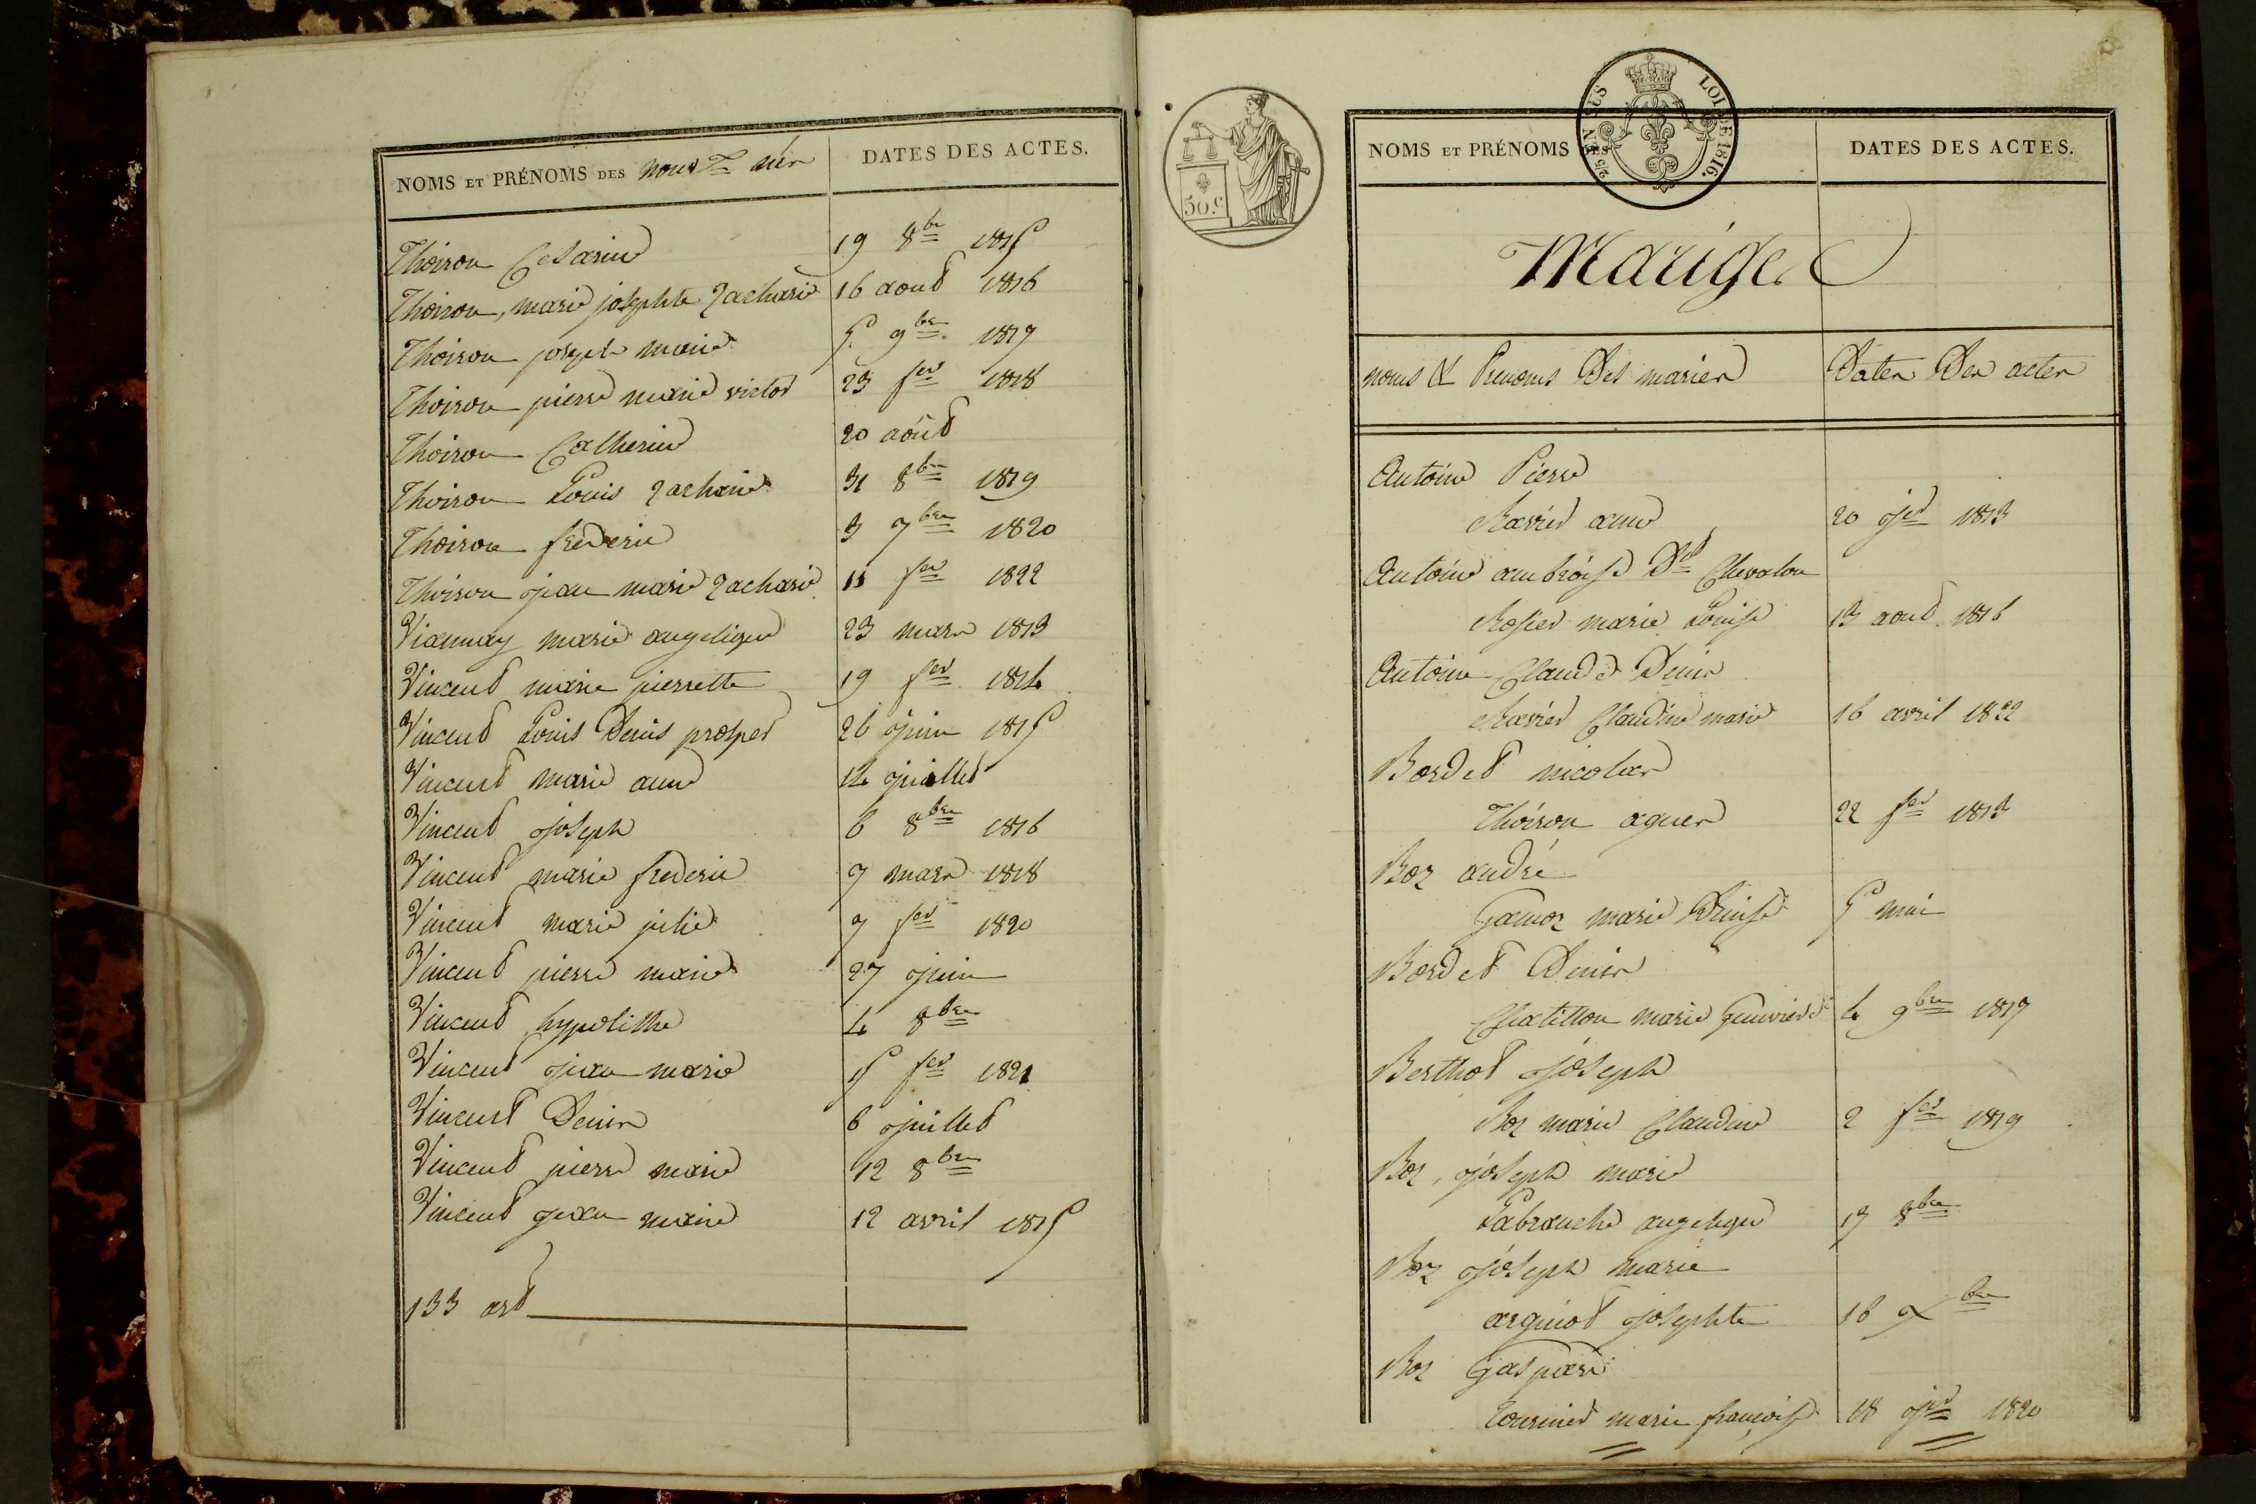 NOMS ET PRÉNOMS DES nouv nés
DATES DES ACTES.
Thoiron Cesarine 19 8bre 1815
Thoiron, marie josephte Zacharie 16 aout 1816
Thoiron joseph marie 5 9bre 1817
Thoiron pierre marie victor 23 fer 1818
Thoiron Catherine 20 août
Thoiron Louis Zacharie 31 8bre 1819
Thoiron frederic 3 7bre 1820
Thoiron jean marie Zacharie 11 fer 1822
Viannay marie angelique 23 mars 1813
Vincent marie pierrette 19 fer 1814
Vincent Louis Denis prosper 26 juin 1815
Vincent marie anne 14 juillet
Vincent joseph 6 8bre 1816
Vincent marie frederic 7 mars 1818
Vincent marie julie 7 fer 1820
Vincent pierre marie 27 juin
Vincent hypolithe 4 8bre
Vincent jean marie 15 fer 1821
Vincent Denis 6 juillet
Vincent pierre marie 12 8bre
Vincent jean marie 12 avril 1815
133 art
50.c
LOI DE 1816.
NOMS ET PRÉNOMS DES
DATES DES ACTES.
Mariges
noms & Prenoms Des mariés Dates Des actes
Antoine Pierre
Ravier anne 20 jer 1813
Antoine ambroise Dt Chevalon
Rosier marie Louise 13 aout 1816
Antoine Claude Denis
Ravier Claudine marie 16 avril 1822
Bordet nicolas
Thoiron agnes 22 fer 1813
Boz andré
Gamoz marie Denise 5 mai
Bordet Denis
Chatillon marie Genevieve 4 9bre 1817
Berthot joseph
Boz marie Claudine 2 fer 1819
Boz, joseph marie
Labranche angelique 17 8bre
Boz joseph marie
arginot josephte 16 xbre
Boz Gaspard
Tournier marie françoise 18 jer 1820